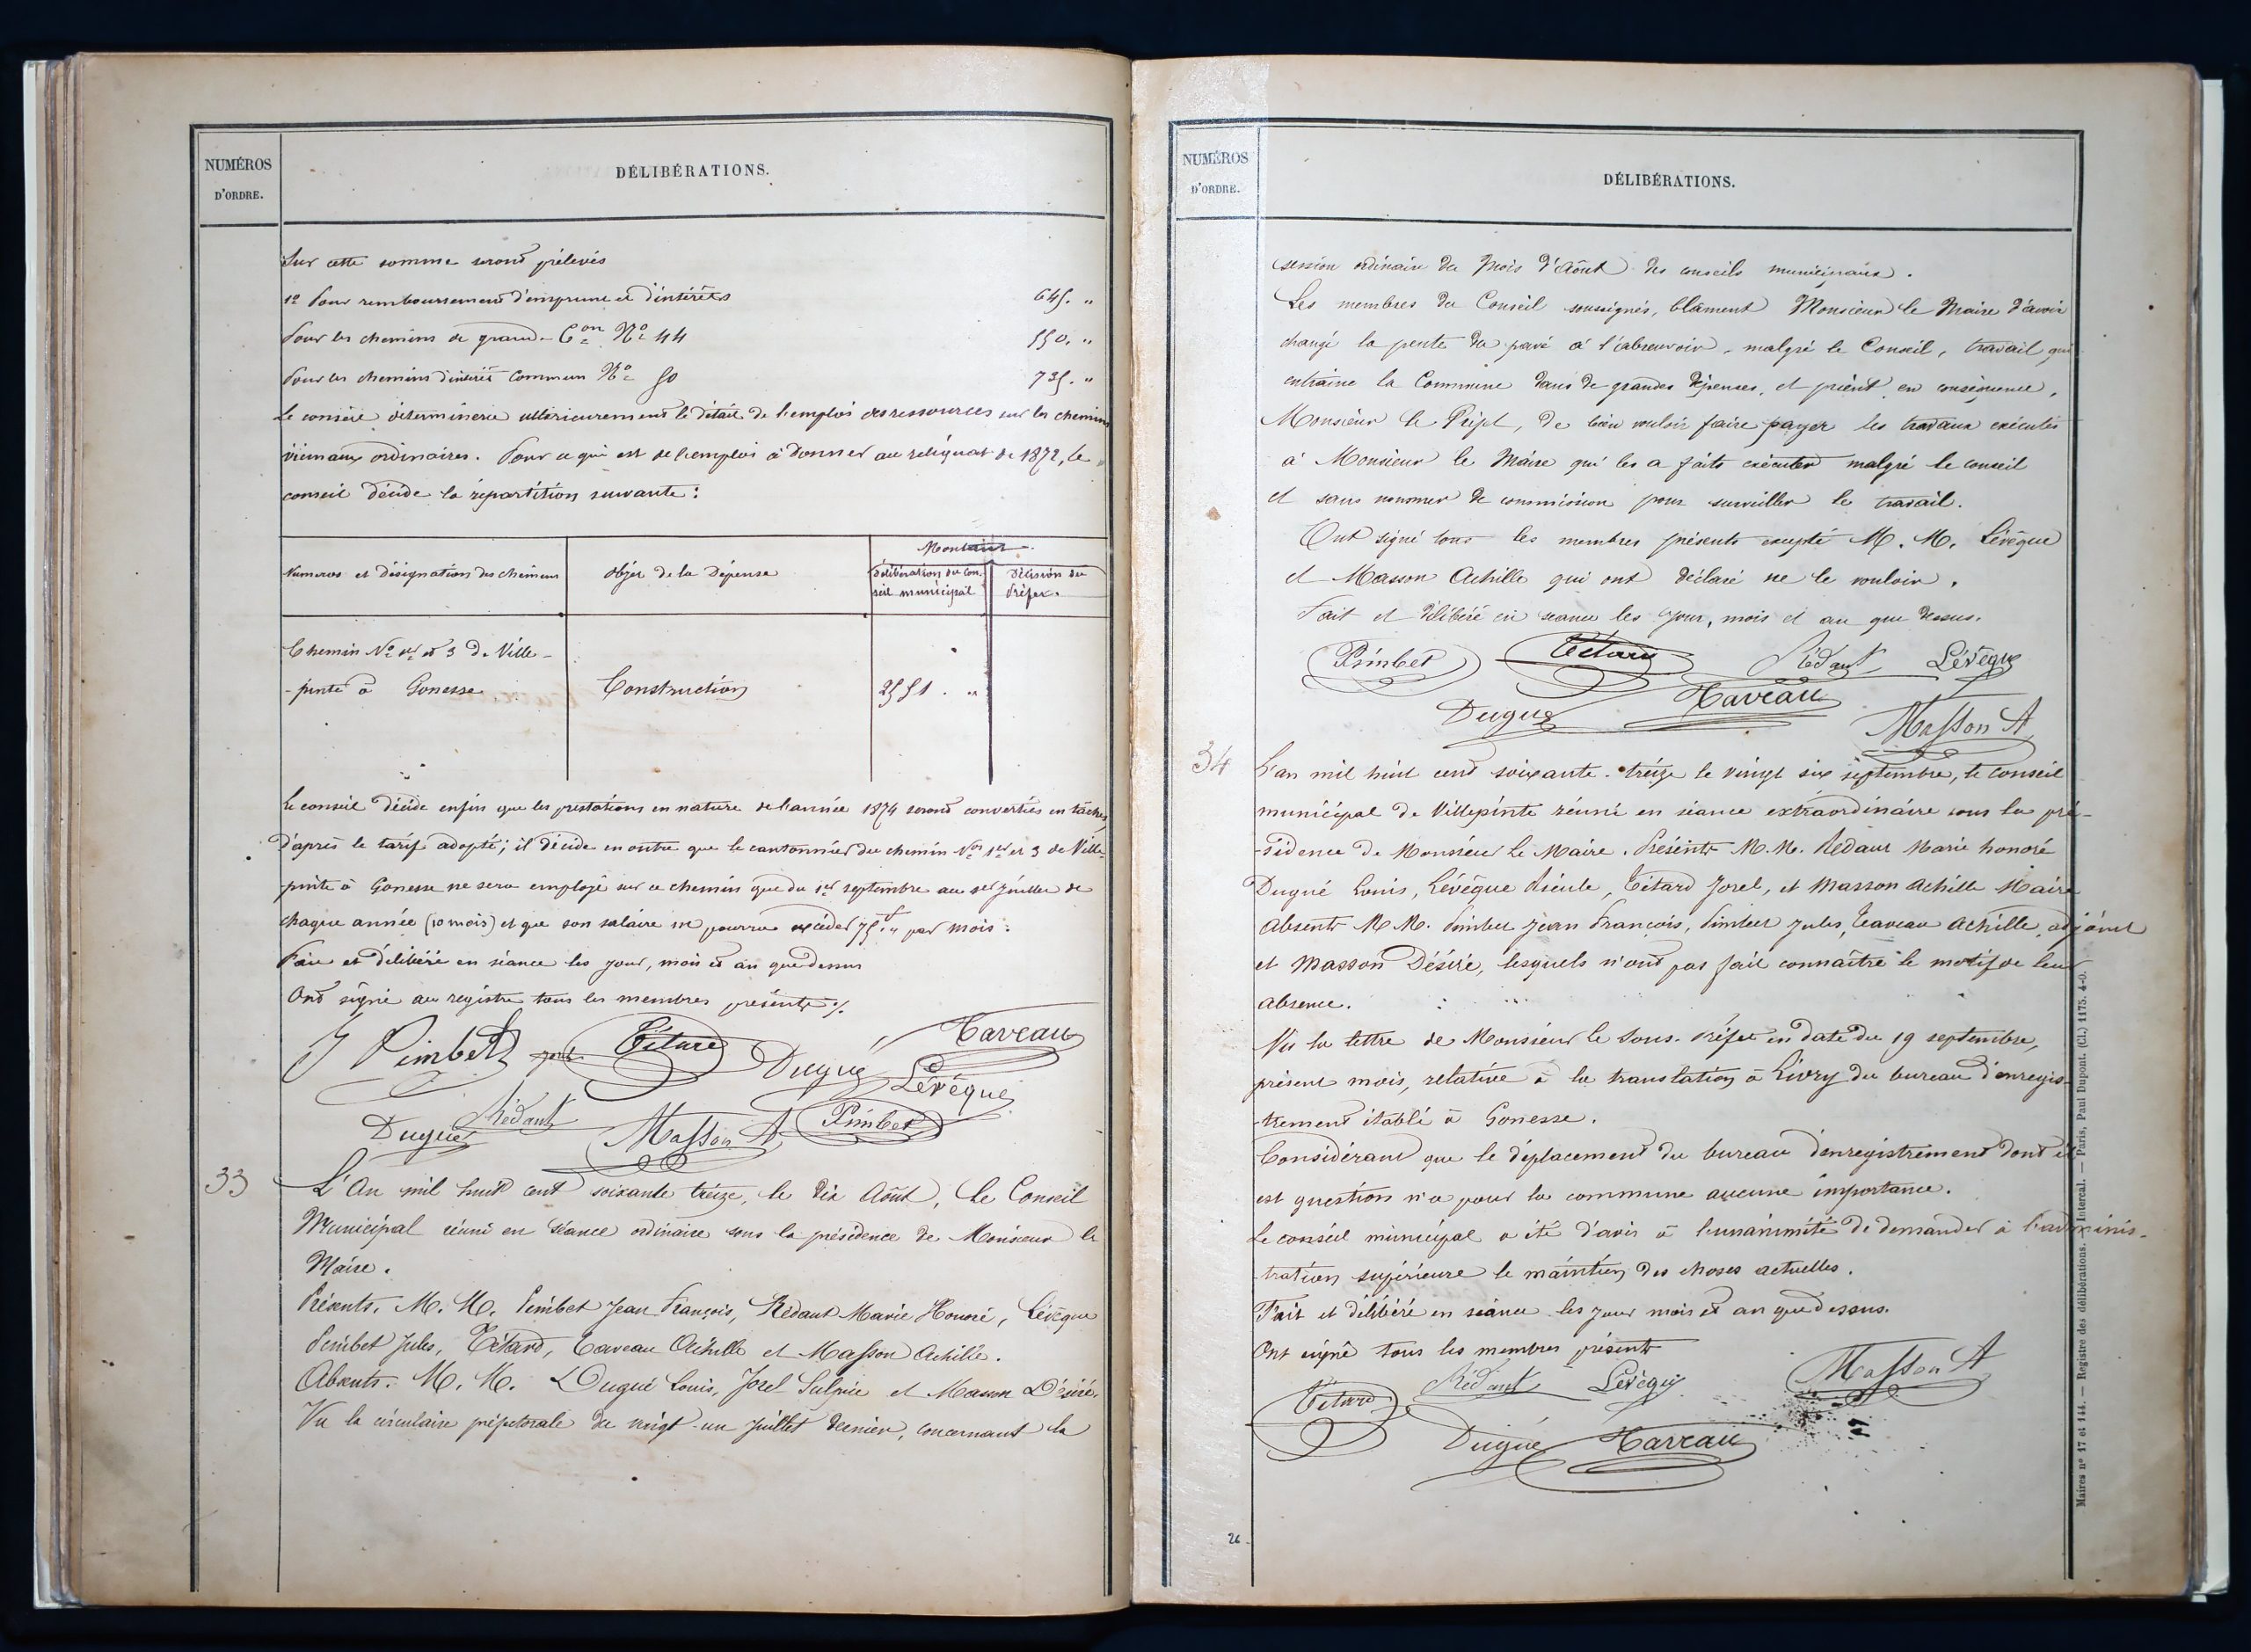 NUMÉROS
D'ORDRE.
DÉLIBÉRATIONS.
Sur cette somme seront prélevés
1º Pour remboursement d'emprunt et d'intérêts 645. "
Pour les chemins de grande Con Nº 44 550. "
Pour les chemins d'intérêt commun Nº 50 735. "
Le conseil déterminera ultérieurement le détail de l'emploi des ressources sur les chemins
vicinaux ordinaires. Pour ce qui est de l'emploi à donner au reliquat de 1872, le
conseil décide la répartition suivante :
Numéros et désignation des chemins
Objet de la dépense
Montant
Délibération du con-
seil municipal
Décision du
Préfet.
Chemin Nº 1er et 3 de Ville-
-pinte à Gonesse
Construction
2551. "
Le conseil décide enfin que les prestations en nature de l'année 1874 seront converties en tâches,
d'après le tarif adopté; il décide en outre que le cantonnier du chemin Nos 1er et 3 de Ville-
pinte à Gonesse ne sera employé sur ce chemin que du 1er septembre au 1er juillet de
chaque année (10 mois) et que son salaire ne pourra excéder 75f " par mois.
Fait et délibéré en séance les jour, mois et an que dessus
Ont signé au registre tous les membres présents ./.
J Pimbet Tétard Dugué Taveau
Lévêque
Dugué Rédaut Masson A Pimbet
33
L'An mil huit cent soixante treize, le dix Août, Le Conseil
Municipal réuni en séance ordinaire sous la présidence de Monsieur le
Maire.
Présents, M. M. Pimbet Jean François, Rédaut Marie Honoré, Lévêque
Pimbet Jules, Tétard, Taveau Achille et Masson Achille.
Absents. M. M. Dugué Louis, Jorel Sulpice et Masson Désiré.
Vu la circulaire préfectorale du vingt-un juillet dernier, concernant la
NUMÉROS
D'ORDRE.
DÉLIBÉRATIONS.
session ordinaire du Mois d'Août des conseils municipaux.
Les membres du Conseil soussignés, blâment Monsieur le Maire d'avoir
changé la pente du pavé à l'abreuvoir, malgré le Conseil, travail qui
entraîne la Commune dans de grandes dépenses, et prient en conséquence,
Monsieur le Préfet, de bien vouloir faire payer les travaux exécutés
à Monsieur le Maire qui les a faits exécuter malgré le conseil
et sans nommer de commission pour surveiller le travail.
Ont signé tous les membres présents excepté M. M. Lévêque
et Masson Achille qui ont déclaré ne le vouloir.
Fait et délibéré en séance les jour, mois et an que dessus.
Pimbet Tétard Rédaut Lévêque
Dugué Taveau
Masson A
34
L'an mil huit cent soixante-treize le vingt six septembre, le conseil
municipal de Villepinte réuni en séance extraordinaire sous la pré-
-sidence de Monsieur Le Maire. Présents M.M. Rédaut Marie honoré
Dugué Louis, Lévêque Tétard Jorel, et Masson Achille Maire
Absents M M. Pimbet Jean François, Pimbet Jules, Taveau Achille, adjoint
et Masson Désiré, lesquels n'ont pas fait connaître le motif de leur
absence.
Vu la lettre de Monsieur le Sous-Préfet en date du 19 septembre,
présent mois, relative à la translation à Livry du bureau d'enregis-
-trement établi à Gonesse.
Considérant que le déplacement du bureau d'enregistrement dont il
est question n'a pour la commune aucune importance.
Le conseil municipal a été d'avis à l'unanimité de demander à l'adminis-
-tration supérieure le maintien des choses actuelles.
Fait et délibéré en séance les jour mois et an que dessus.
Ont signé tous les membres présents
Tétard Rédaut Lévêque Masson A
Dugué Taveau
26
Maires nº 17 et 144. — Registre des délibérations. — Intercal. — Paris, Paul Dupont. (Cl.) 1175. 4-0.